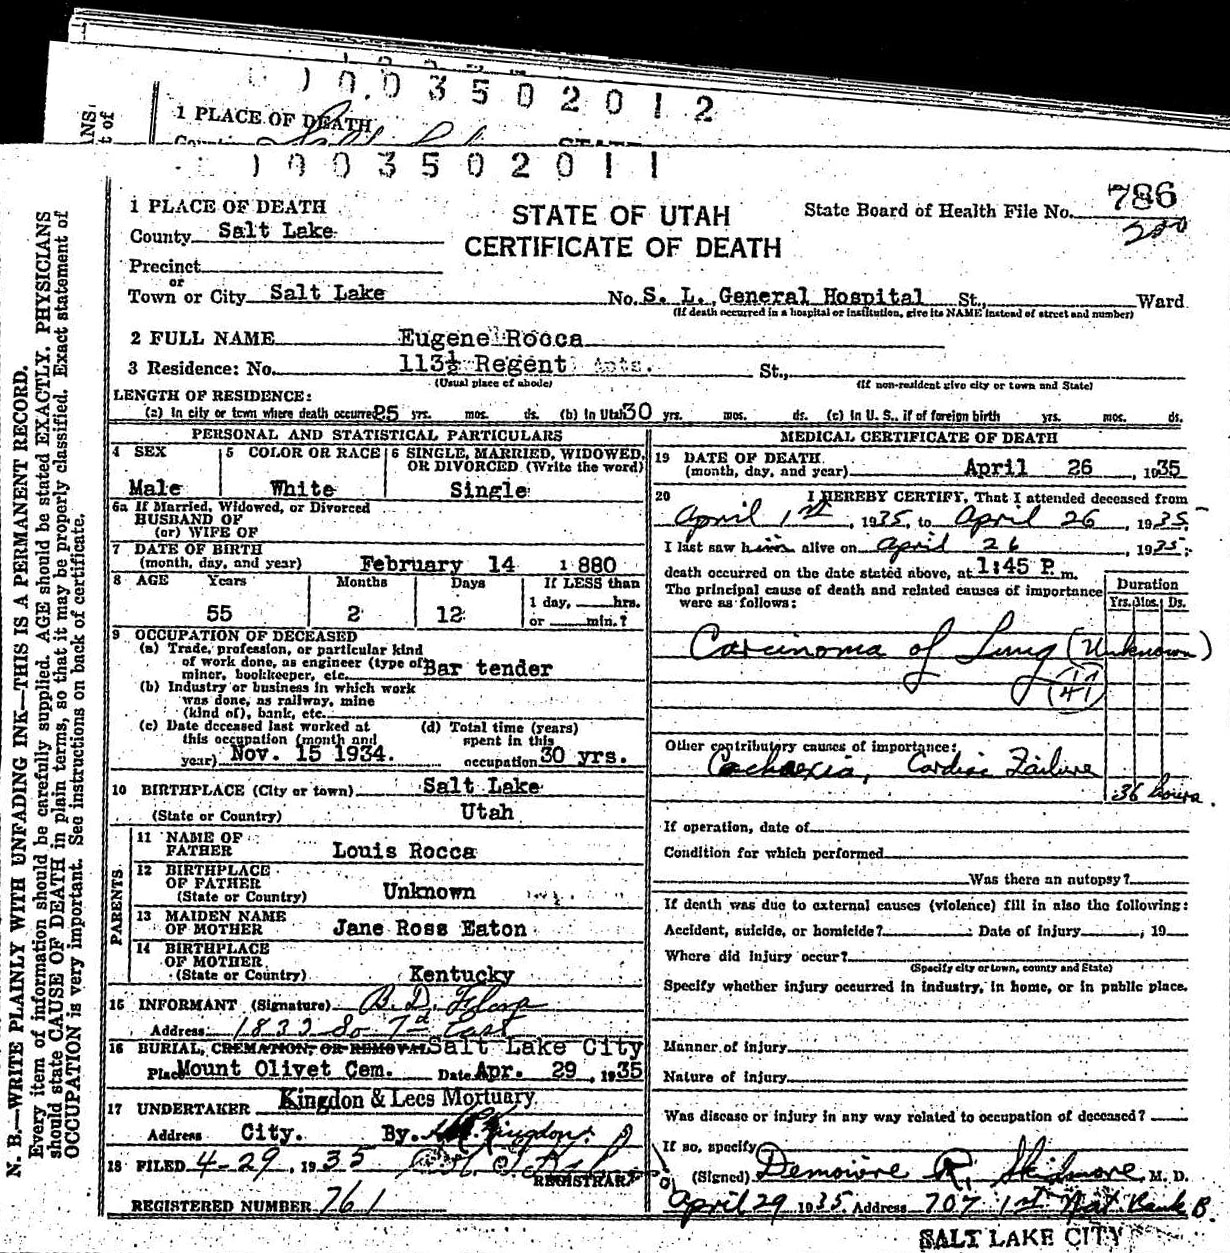 1 0 0 3 5 0 2 0 1 2
1 PLACE OF DEATH
1 0 0 3 5 0 2 0 1 1
N. B.—WRITE PLAINLY WITH UNFADING INK—THIS IS A PERMANENT RECORD.
Every item of information should be carefully supplied. AGE should be stated EXACTLY. PHYSICIANS
should state CAUSE OF DEATH in plain terms, so that it may be properly classified. Exact statement of
OCCUPATION is very important. See instructions on back of certificate.
1 PLACE OF DEATH
County Salt Lake
Precinct
or
Town or City Salt Lake
STATE OF UTAH
CERTIFICATE OF DEATH
State Board of Health File No. 786
No. S. L. General Hospital St., Ward
(If death occurred in a hospital or institution, give its NAME instead of street and number)
2 FULL NAME Eugene Rocca
3 Residence: No. 113½ Regent Apts. St.,
(Usual place of abode) (If non-resident give city or town and State)
LENGTH OF RESIDENCE:
(a) In city or town where death occurred 25 yrs. mos. ds. (b) In Utah 30 yrs. mos. ds. (c) In U. S., if of foreign birth yrs. mos. ds.
PERSONAL AND STATISTICAL PARTICULARS
4 SEX 5 COLOR OR RACE 6 SINGLE, MARRIED, WIDOWED,
OR DIVORCED (Write the word)
Male White Single
6a If Married, Widowed, or Divorced
HUSBAND OF
(or) WIFE OF
7 DATE OF BIRTH
(month, day, and year) February 14 1880
8 AGE Years Months Days If LESS than
1 day, hrs.
or min.?
55 2 12
9 OCCUPATION OF DECEASED
(a) Trade, profession, or particular kind
of work done, as engineer (type of
miner, bookkeeper, etc. Bar tender
(b) Industry or business in which work
was done, as railway, mine
(kind of), bank, etc.
(c) Date deceased last worked at
this occupation (month and
year) Nov. 15 1934.
(d) Total time (years)
spent in this
occupation 30 yrs.
10 BIRTHPLACE (City or town) Salt Lake
(State or Country) Utah
PARENTS
11 NAME OF
FATHER Louis Rocca
12 BIRTHPLACE
OF FATHER
(State or Country) Unknown
13 MAIDEN NAME
OF MOTHER Jane Ross Eaton
14 BIRTHPLACE
OF MOTHER
(State or Country) Kentucky
15 INFORMANT (Signature) B. D. Flora
Address 1832 So 7th East
16 BURIAL, CREMATION, OR REMOVAL Salt Lake City
Place Mount Olivet Cem. Date Apr. 29, 1935
17 UNDERTAKER Kingdon & Lees Mortuary
Address City. By Kingdon
18 FILED 4-29, 1935
REGISTRAR
REGISTERED NUMBER 761
MEDICAL CERTIFICATE OF DEATH
19 DATE OF DEATH
(month, day, and year) April 26, 1935
20 I HEREBY CERTIFY, That I attended deceased from
April 1st, 1935, to April 26, 1935
I last saw him alive on April 26, 1935;
death occurred on the date stated above, at 1:45 P. m.
The principal cause of death and related causes of importance
were as follows:
Duration
Yrs. Mos. Ds.
Carcinoma of Lung (Unknown)
47
Other contributory causes of importance:
Cachexia, Cardiac Failure
36 hours.
If operation, date of
Condition for which performed
Was there an autopsy?
If death was due to external causes (violence) fill in also the following:
Accident, suicide, or homicide? Date of injury, 19
Where did injury occur?
(Specify city or town, county and State)
Specify whether injury occurred in industry, in home, or in public place.
Manner of injury
Nature of injury
Was disease or injury in any way related to occupation of deceased?
If so, specify
(Signed) R. Skidmore M. D.
April 29 1935. Address 707 1st Nat. Bank B.
SALT LAKE CITY